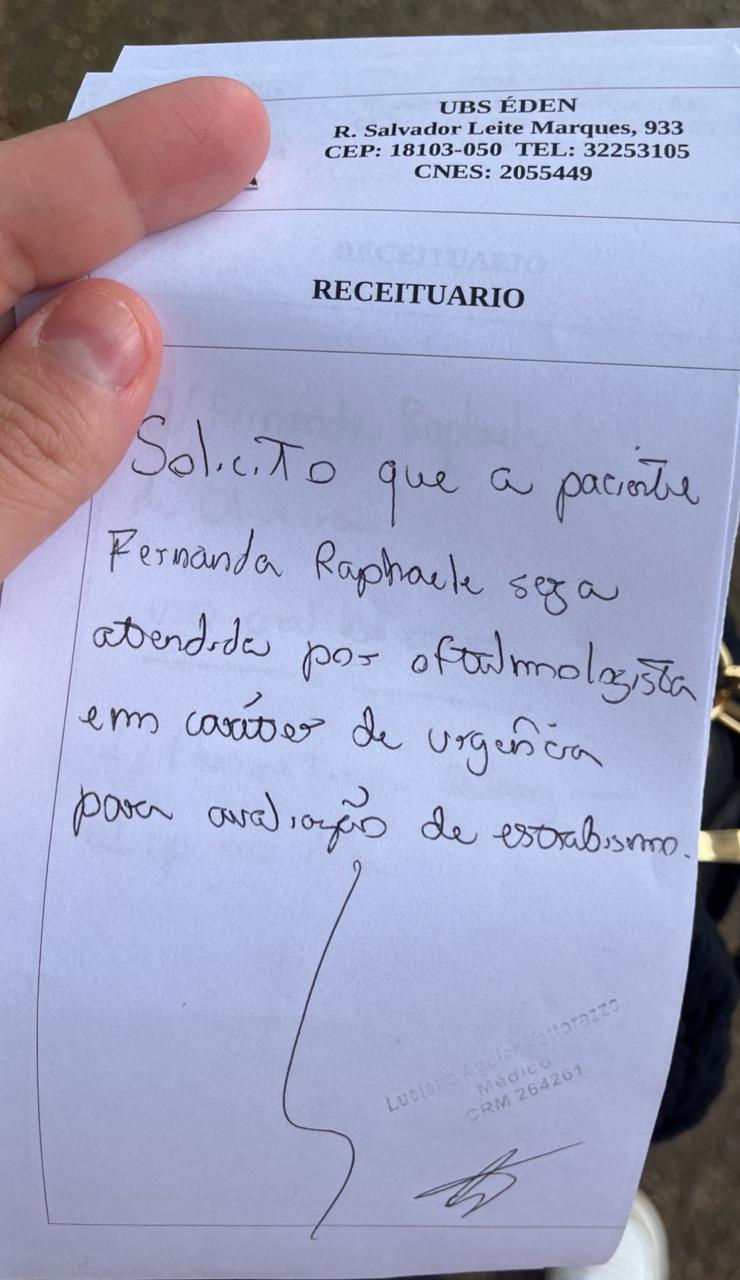 UBS ÉDEN
R. Salvador Leite Marques, 933
CEP: 18103-050 TEL: 32253105
CNES: 2055449
RECEITUARIO
Solicito que a paciente
Fernanda Raphaele seja
atendida por oftalmologista
em caráter de urgência
para avaliação de estrabismo.
Luciano Aguiar Vettorazzo
Médico
CRM 264261